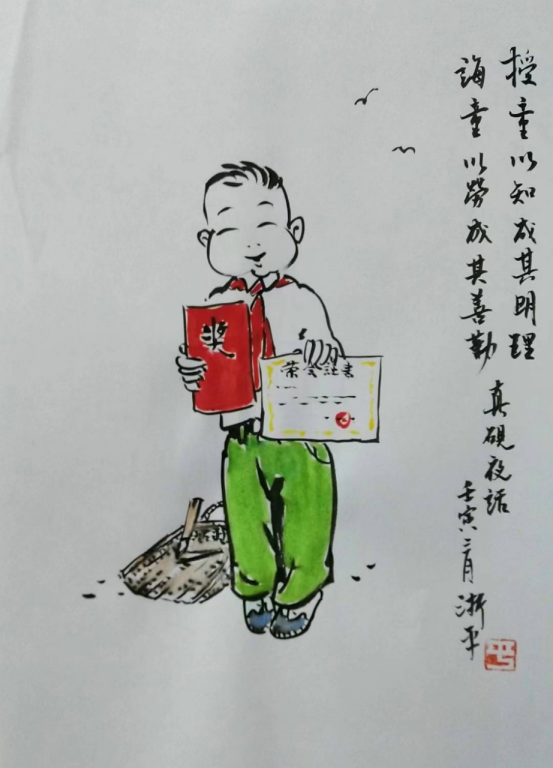 授童以知成其明理
誨童以勞成其善勤
真硯夜話
壬寅三月浙平
奖
荣誉证书